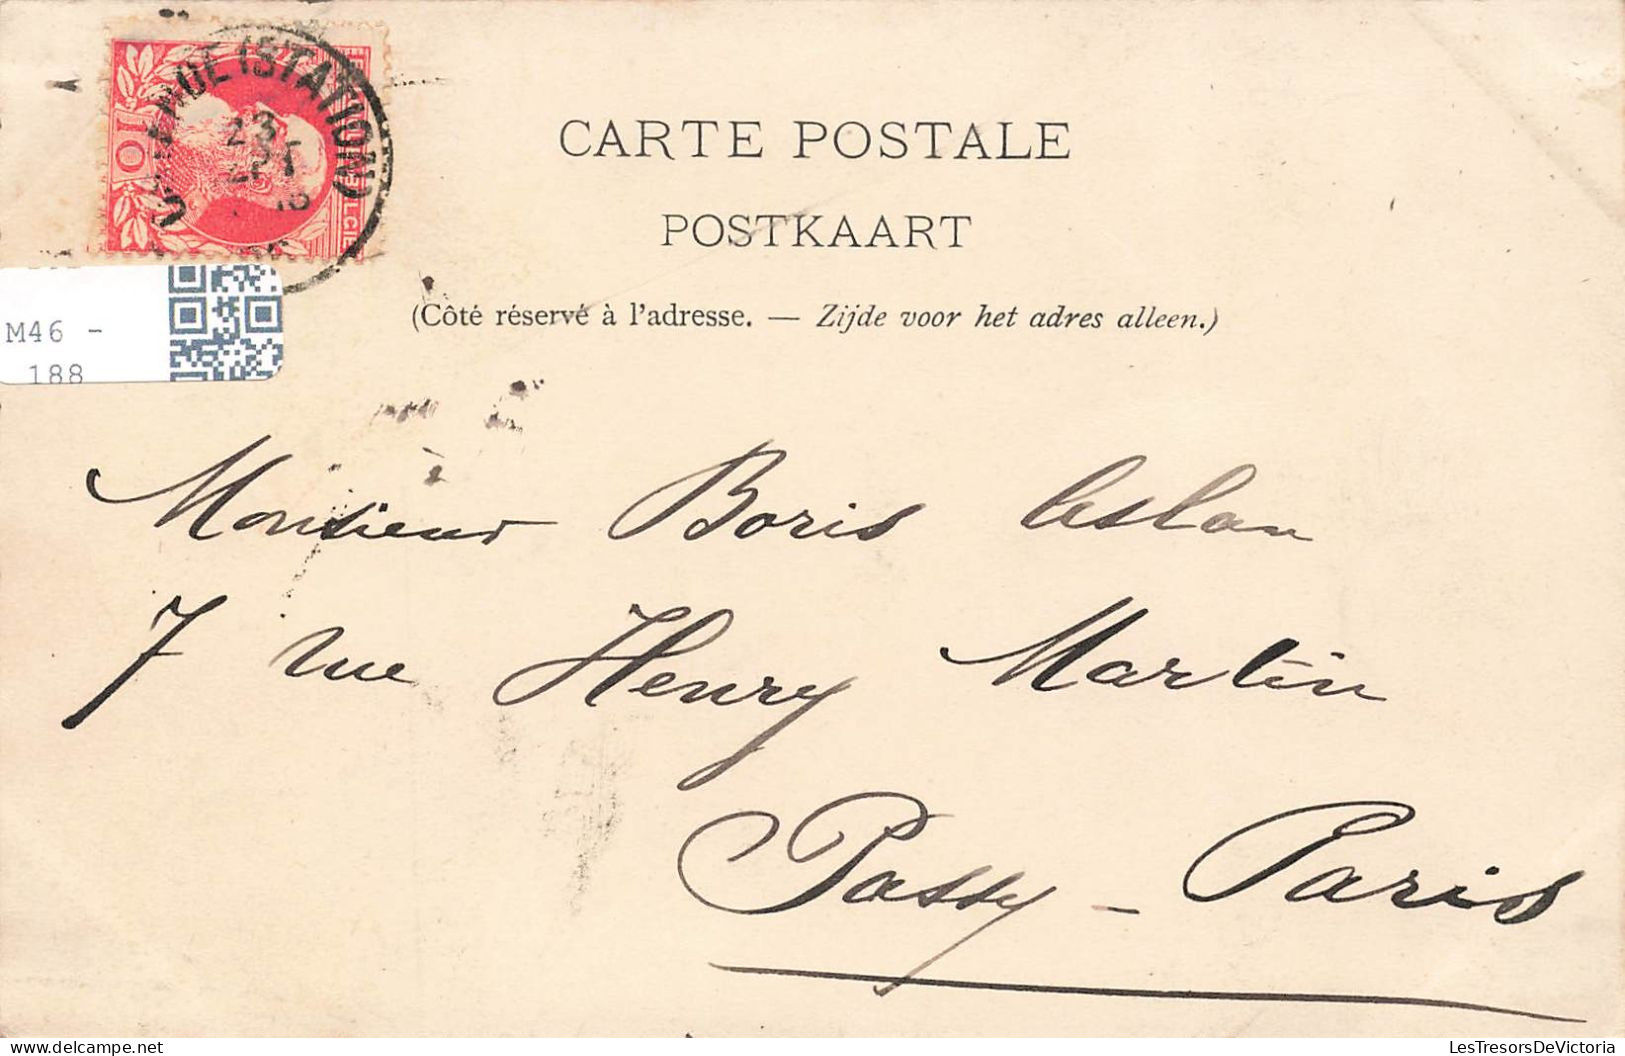 (STATION)
23
10
CARTE POSTALE
POSTKAART
(Côté réservé à l'adresse. — Zijde voor het adres alleen.)
M46 -
188
Monsieur Boris
7 rue Henry Martin
Passy - Paris
LesTresorsDeVictoria